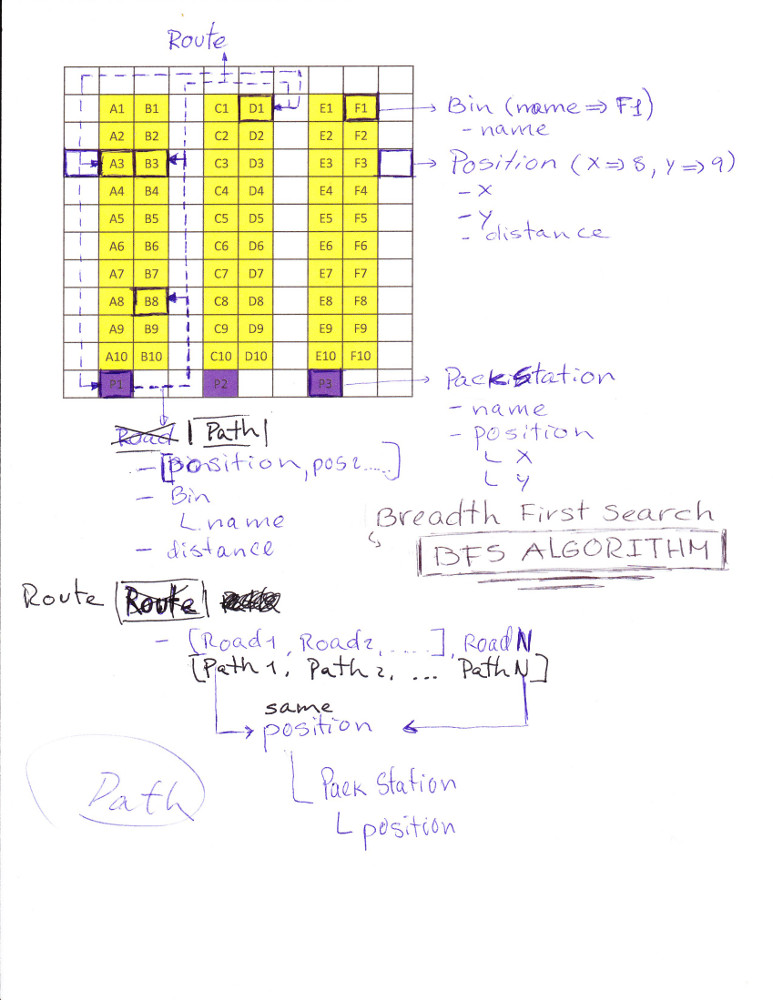 Route
A1 B1 C1 D1 E1 F1
A2 B2 C2 D2 E2 F2
A3 B3 C3 D3 E3 F3
A4 B4 C4 D4 E4 F4
A5 B5 C5 D5 E5 F5
A6 B6 C6 D6 E6 F6
A7 B7 C7 D7 E7 F7
A8 B8 C8 D8 E8 F8
A9 B9 C9 D9 E9 F9
A10 B10 C10 D10 E10 F10
P1 P2 P3
Bin (name => F1)
- name
Position (X => 8, Y => 9)
- X
- Y
- distance
PackStation
- name
- position
X
Y
Road | Path |
- [position, pos2.....]
- Bin
name
- distance
Breadth First Search
BFS ALGORITHM
Route | Route |
- [Road1, Road2, .....], RoadN
[Path1, Path2, ... PathN]
same
position
Pack Station
position
Path